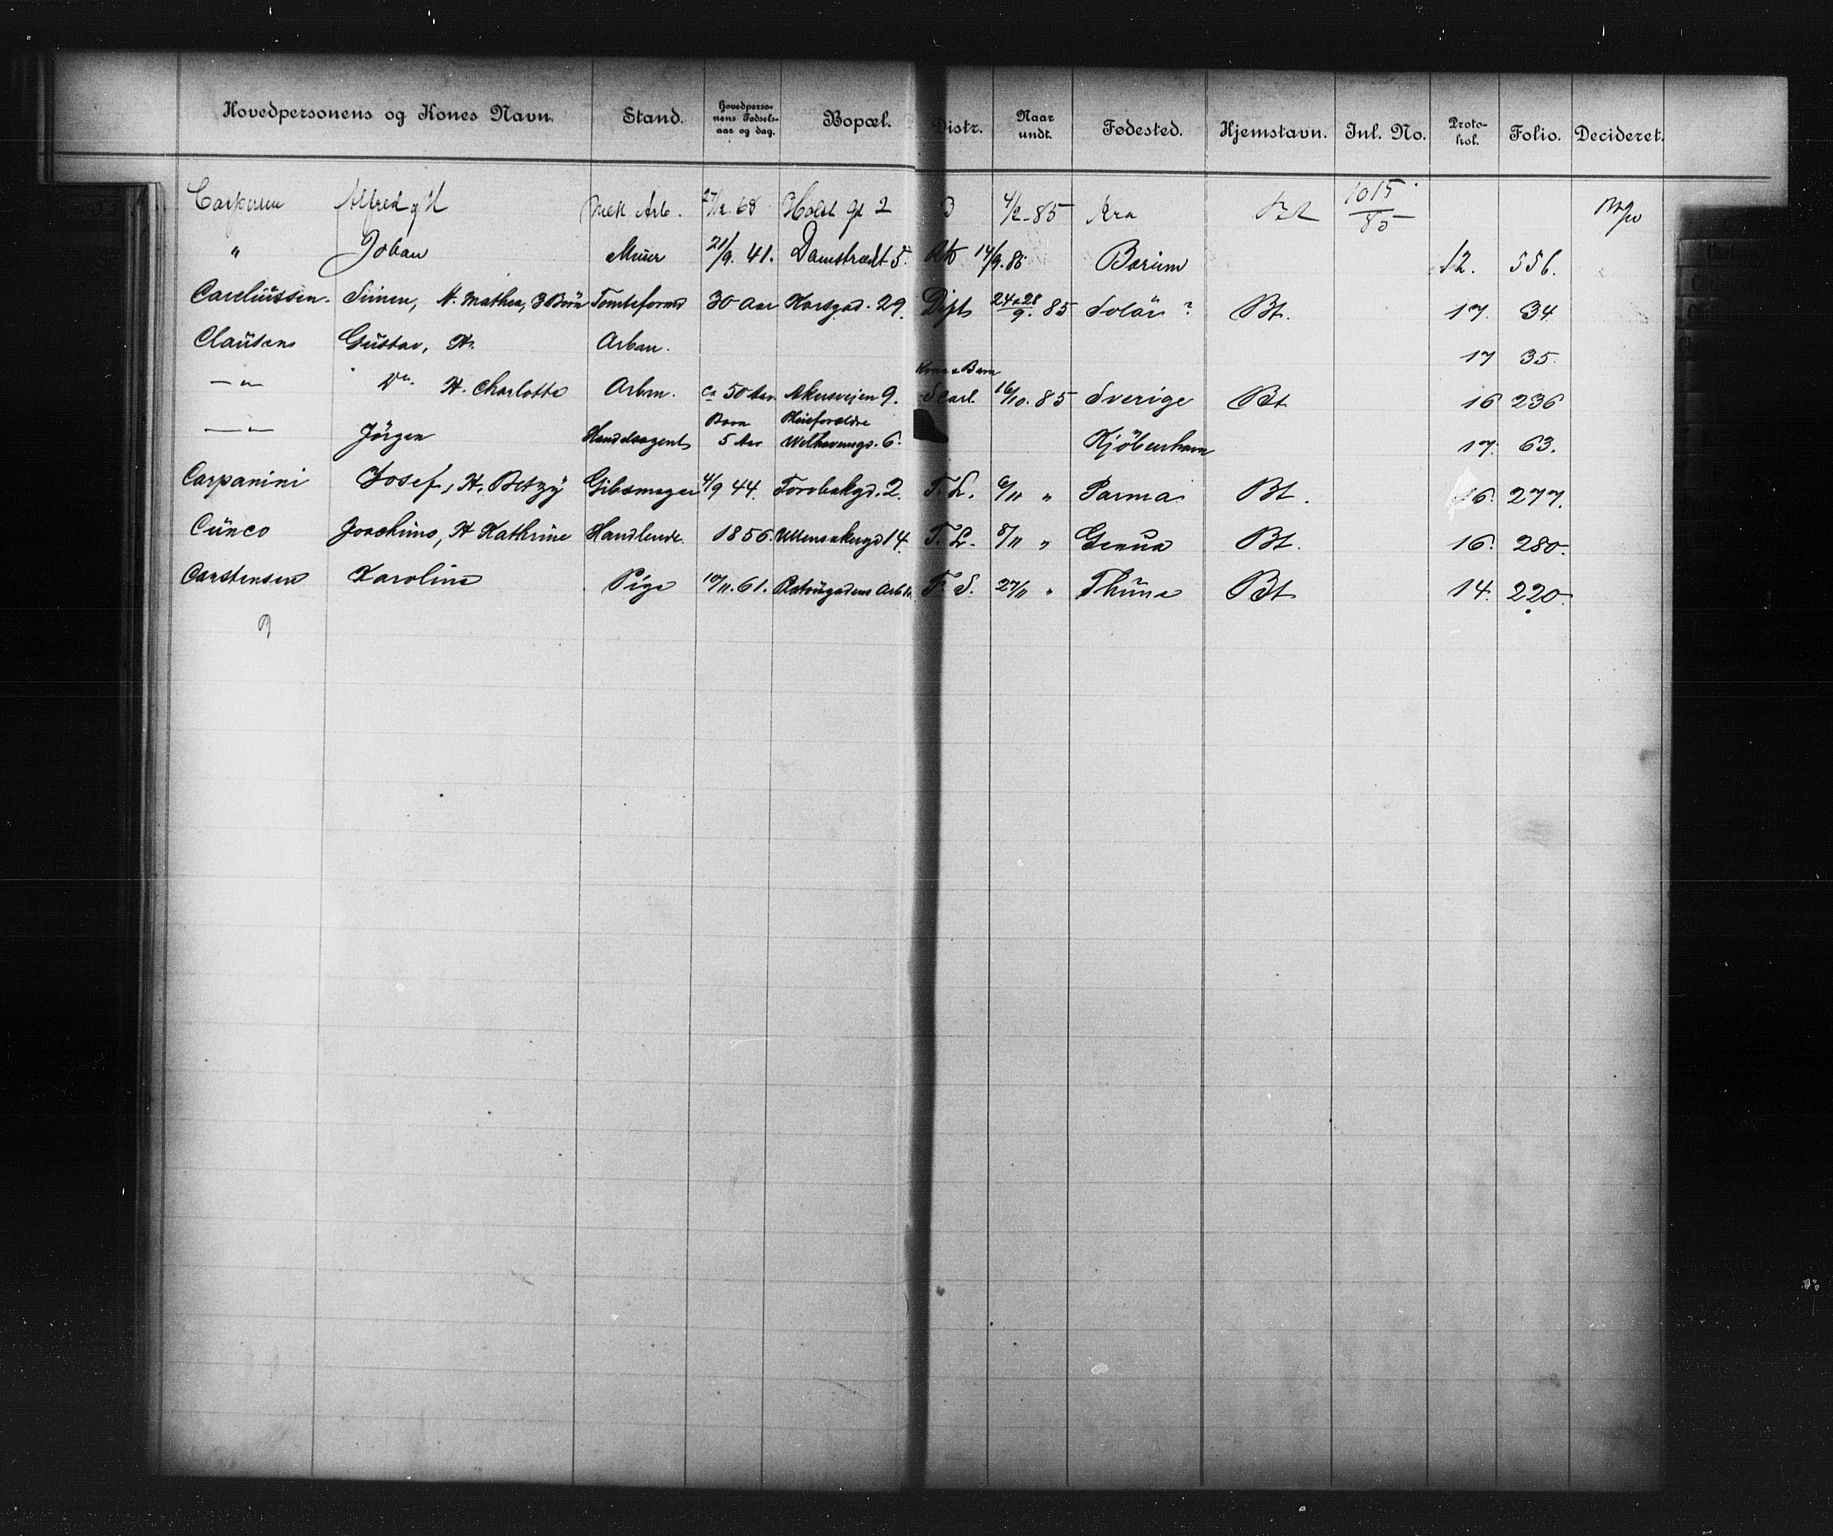 Hovedpersonens og Kones Navn. Stand. Hovedpersonens Fødselsaar og dag. Bopæl. Distr. Naar undt. Fødested. Hjemstavn. Jnl. No. Protokol. Folio. Decideret.
Caspersen Alfred Mek Arb. 68 Holst G 2 4/2-85 Kra 1015/85
" Johan Murer 21/9. 41. Damstrædt 5. 14/9. 85 Bærum 12. 556.
Careliussen. Simen, K. Mathea, 3 Børn Tomteformd 30 Aar Korsgad. 29. Dipt 24 a 28/9. 85 Solør ? Bt. 17. 34
Clausen Gustav, K. Arbm. 17 35.
—"— Do. K. Charlotte Arbm. ca 50 Aar. Akersveien 9. Kone a Barn S Carl. 16/10. 85 Sverige Bt 16 236
—"— Jörgen Handelsagent Barn 5 Aar Pleieforældre Welhavensgd. 6. Kjöbenhavn 17. 63.
Carpanini Josef, K. Betzy Gibsmager 4/9 44. Torvbakgd. 2. F. L. 6/11 " Parma Bt. 16. 277.
Cuneo Joachimo, K Kathrine Handlende. 1856. Ullensakergd 14. F. L. 8/11 " Genua Bt. 16. 280.
Carstensen Karoline Pige 10/11. 61. F. S. 27/11 " Thune Bt 14. 220.